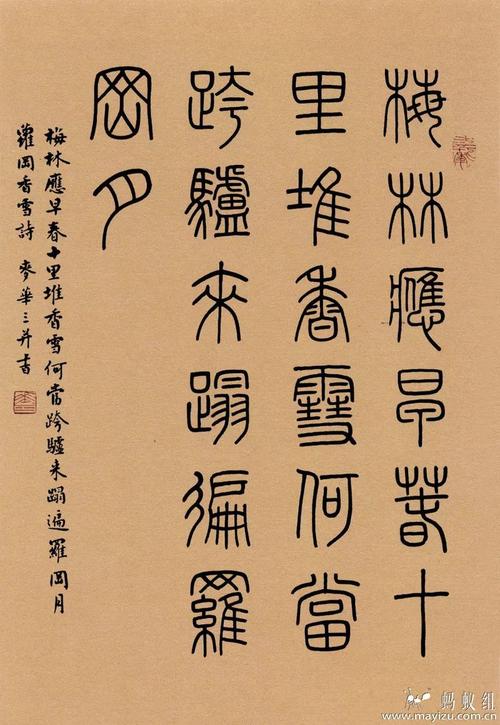 梅林應早春十
里堆香雪何當
跨驢來蹋徧羅
岡月
梅林應早春十里堆香雪何當跨驢来蹋遍羅岡月
蘿岡香雪詩 麥華三并書
蚂蚁组
www.mayizu.com.cn